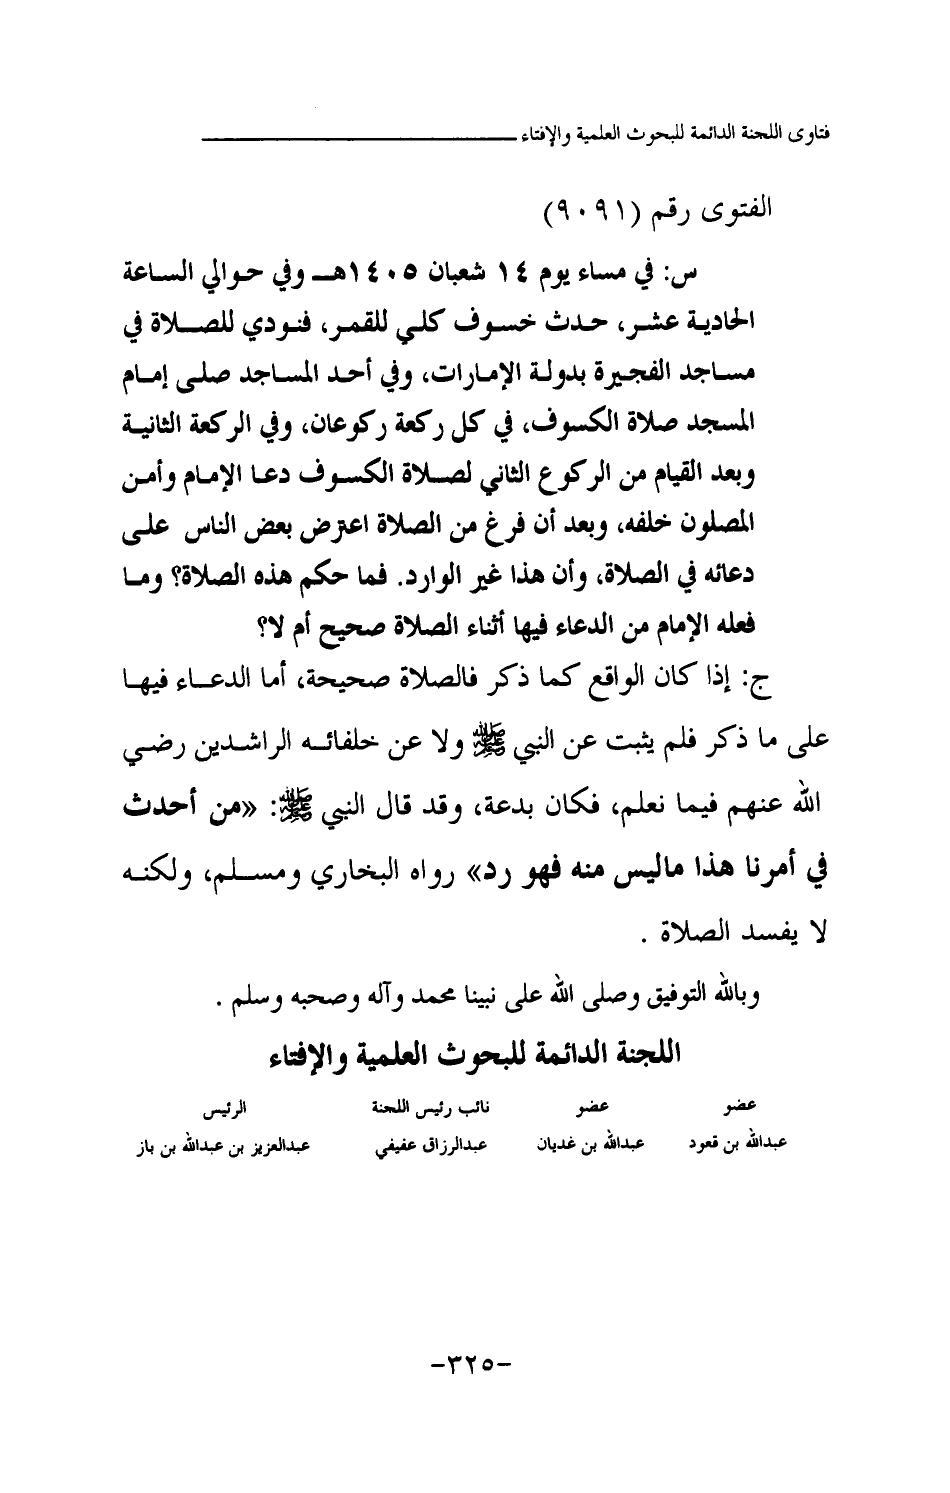 فتاوى اللجنة الدائمة للبحوث العلمية والإفتاء
الفتوى رقم (٩٠٩١)
س: في مساء يوم ١٤ شعبان ١٤٠٥هـ وفي حوالي الساعة
الحادية عشر، حدث خسوف كلي للقمر، فنودي للصلاة في
مساجد الفجيرة بدولة الإمارات، وفي أحد المساجد صلى إمام
المسجد صلاة الكسوف، في كل ركعة ركوعان، وفي الركعة الثانية
وبعد القيام من الركوع الثاني لصلاة الكسوف دعا الإمام وأمن
المصلون خلفه، وبعد أن فرغ من الصلاة اعترض بعض الناس على
دعائه في الصلاة، وأن هذا غير الوارد. فما حكم هذه الصلاة؟ وما
فعله الإمام من الدعاء فيها أثناء الصلاة صحيح أم لا؟
ج: إذا كان الواقع كما ذكر فالصلاة صحيحة، أما الدعاء فيها
على ما ذكر فلم يثبت عن النبي ﷺ ولا عن خلفائه الراشدين رضي
الله عنهم فيما نعلم، فكان بدعة، وقد قال النبي ﷺ: «من أحدث
في أمرنا هذا ماليس منه فهو رد» رواه البخاري ومسلم، ولكنه
لا يفسد الصلاة .
وبالله التوفيق وصلى الله على نبينا محمد وآله وصحبه وسلم .
اللجنة الدائمة للبحوث العلمية والإفتاء
عضو عضو نائب رئيس اللجنة الرئيس
عبدالله بن قعود عبدالله بن غديان عبدالرزاق عفيفي عبدالعزيز بن عبدالله بن باز
-٣٢٥-